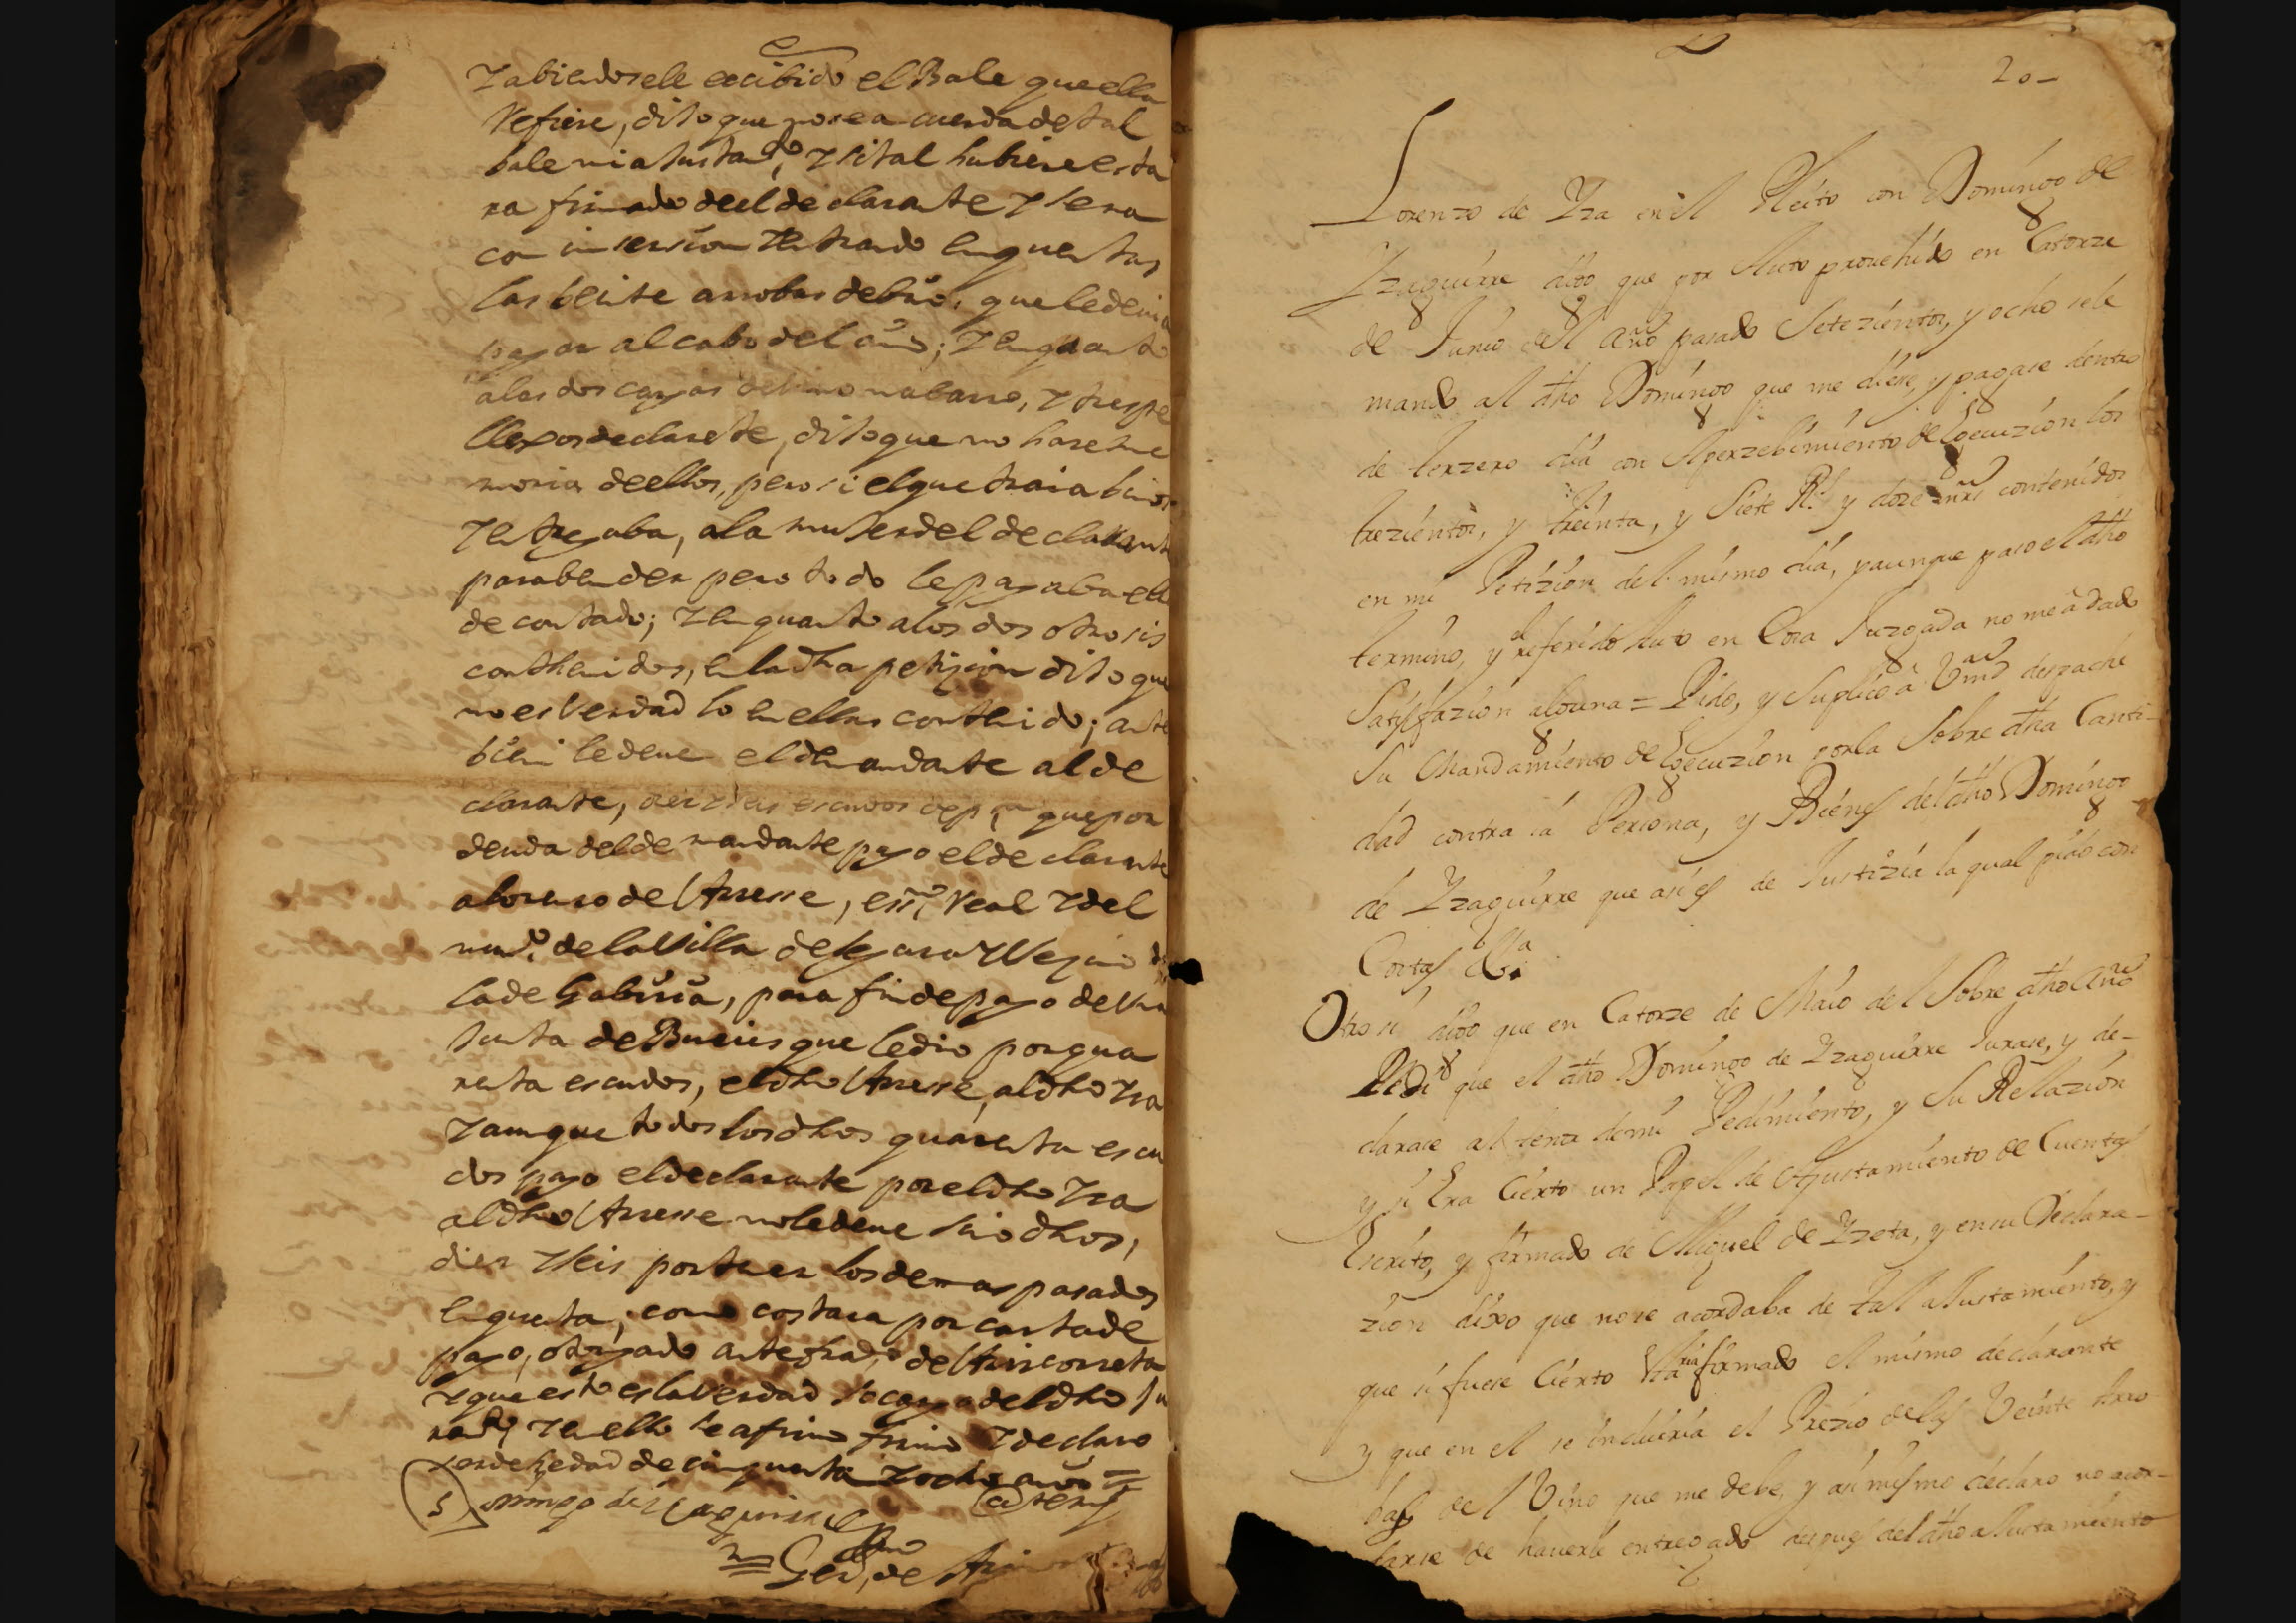 Yabiendosele eccibido el Bale que ella
Refiere, dijo que no se a cuerda de tal
bale ni ajustamto, y si tal hubiere esta
ra firmado deel declarante y sera
con insersion y entrando en quentas
las beinte arrobas de bino, que le devia
pagar al cabo del año; y en quanto
a las dos cargas de bino nabarro, y tres pe
llexos declarete, dijo que no hase me
moria de ellos, pero si el que traia binos
y entregaba, a la muger del declarante
para bender pero todo le pagaba ella
de contado; y en quanto a los dos otro sis
conthenidos, en la dha petizion dijo que
no es Verdad lo en ellos contenido; ante
bien le deve el demandante al de
clarante, diez y seis escudos de pta que por
deuda del demandante pago el declarante
a lorenso de Unsse, essno Real y del
numo de la Villa de Segura y Vezino de
la de Gabiria, para fin de pago de Una
junta de Bueies que le dio por qua
renta escudos, el dho Unsse, al dho Yza
y aunque todos los dhos quarenta escu
dos pago el declarante por el dho Yza
al dho Unsse no le deve sino dhos,
diez y seis por tener los demas pasados
en quenta, como costara por carta de
pago, otorgado ante
y que esto es la verdad so cargo del dho ju
ramto, y en ello se afirmo firmo y declaro
ser de hedad de cinquenta y ocho años =
Domingo de Yzaguirre
Ante mi
de
20-
Lorenzo de Yza en el Pleito con Domingo de
Yzaguirre digo que por Auto prouehido en Catorze
de Junio del año pasado Setezientos, y ocho se le
mando al dho Domingo que me diese, y pagase dentro
de terzero dia con Aperzebimiento de Egecuzion los
trezientos, y treinta, y Siete Rs y doze mrs contenidos
en mi Petizion del mismo dia, y aunque paso el dho
termino, y el referido Auto en Cosa Juzgada no me à dado
Satisfazion alguna = Pido, y Suplico à Vmd despache
Su Mandamiento de Egecuzion por la Sobre dha Canti-
dad contra la Persona, y Bienes del dho Domingo
de Yzaguirre que asi es de Justizia la qual pido con
Costas Va
Otro si digo que en Catorze de Maio del Sobre dho Año
Pedi que el dho Domingo de Yzaguirre Jurase, y de-
clarase al tenor de mi Pedimiento, y Su Relazion
y si Era Cierto un Papel de Ajustamiento de Cuentas
Escrito, y firmado de Miguel de Yzeta, y en su Declara-
zion dixo que no se acordaba de tal aJustamiento, y
que si fuese Cierto estaria firmado el mismo declarante
y que en el se incluiria el Prezio de las Veinte Arro
bas de el Vino que me debe, y asi mismo declaro no acor-
darse de hauerle entregado despues del dho aJustamiento